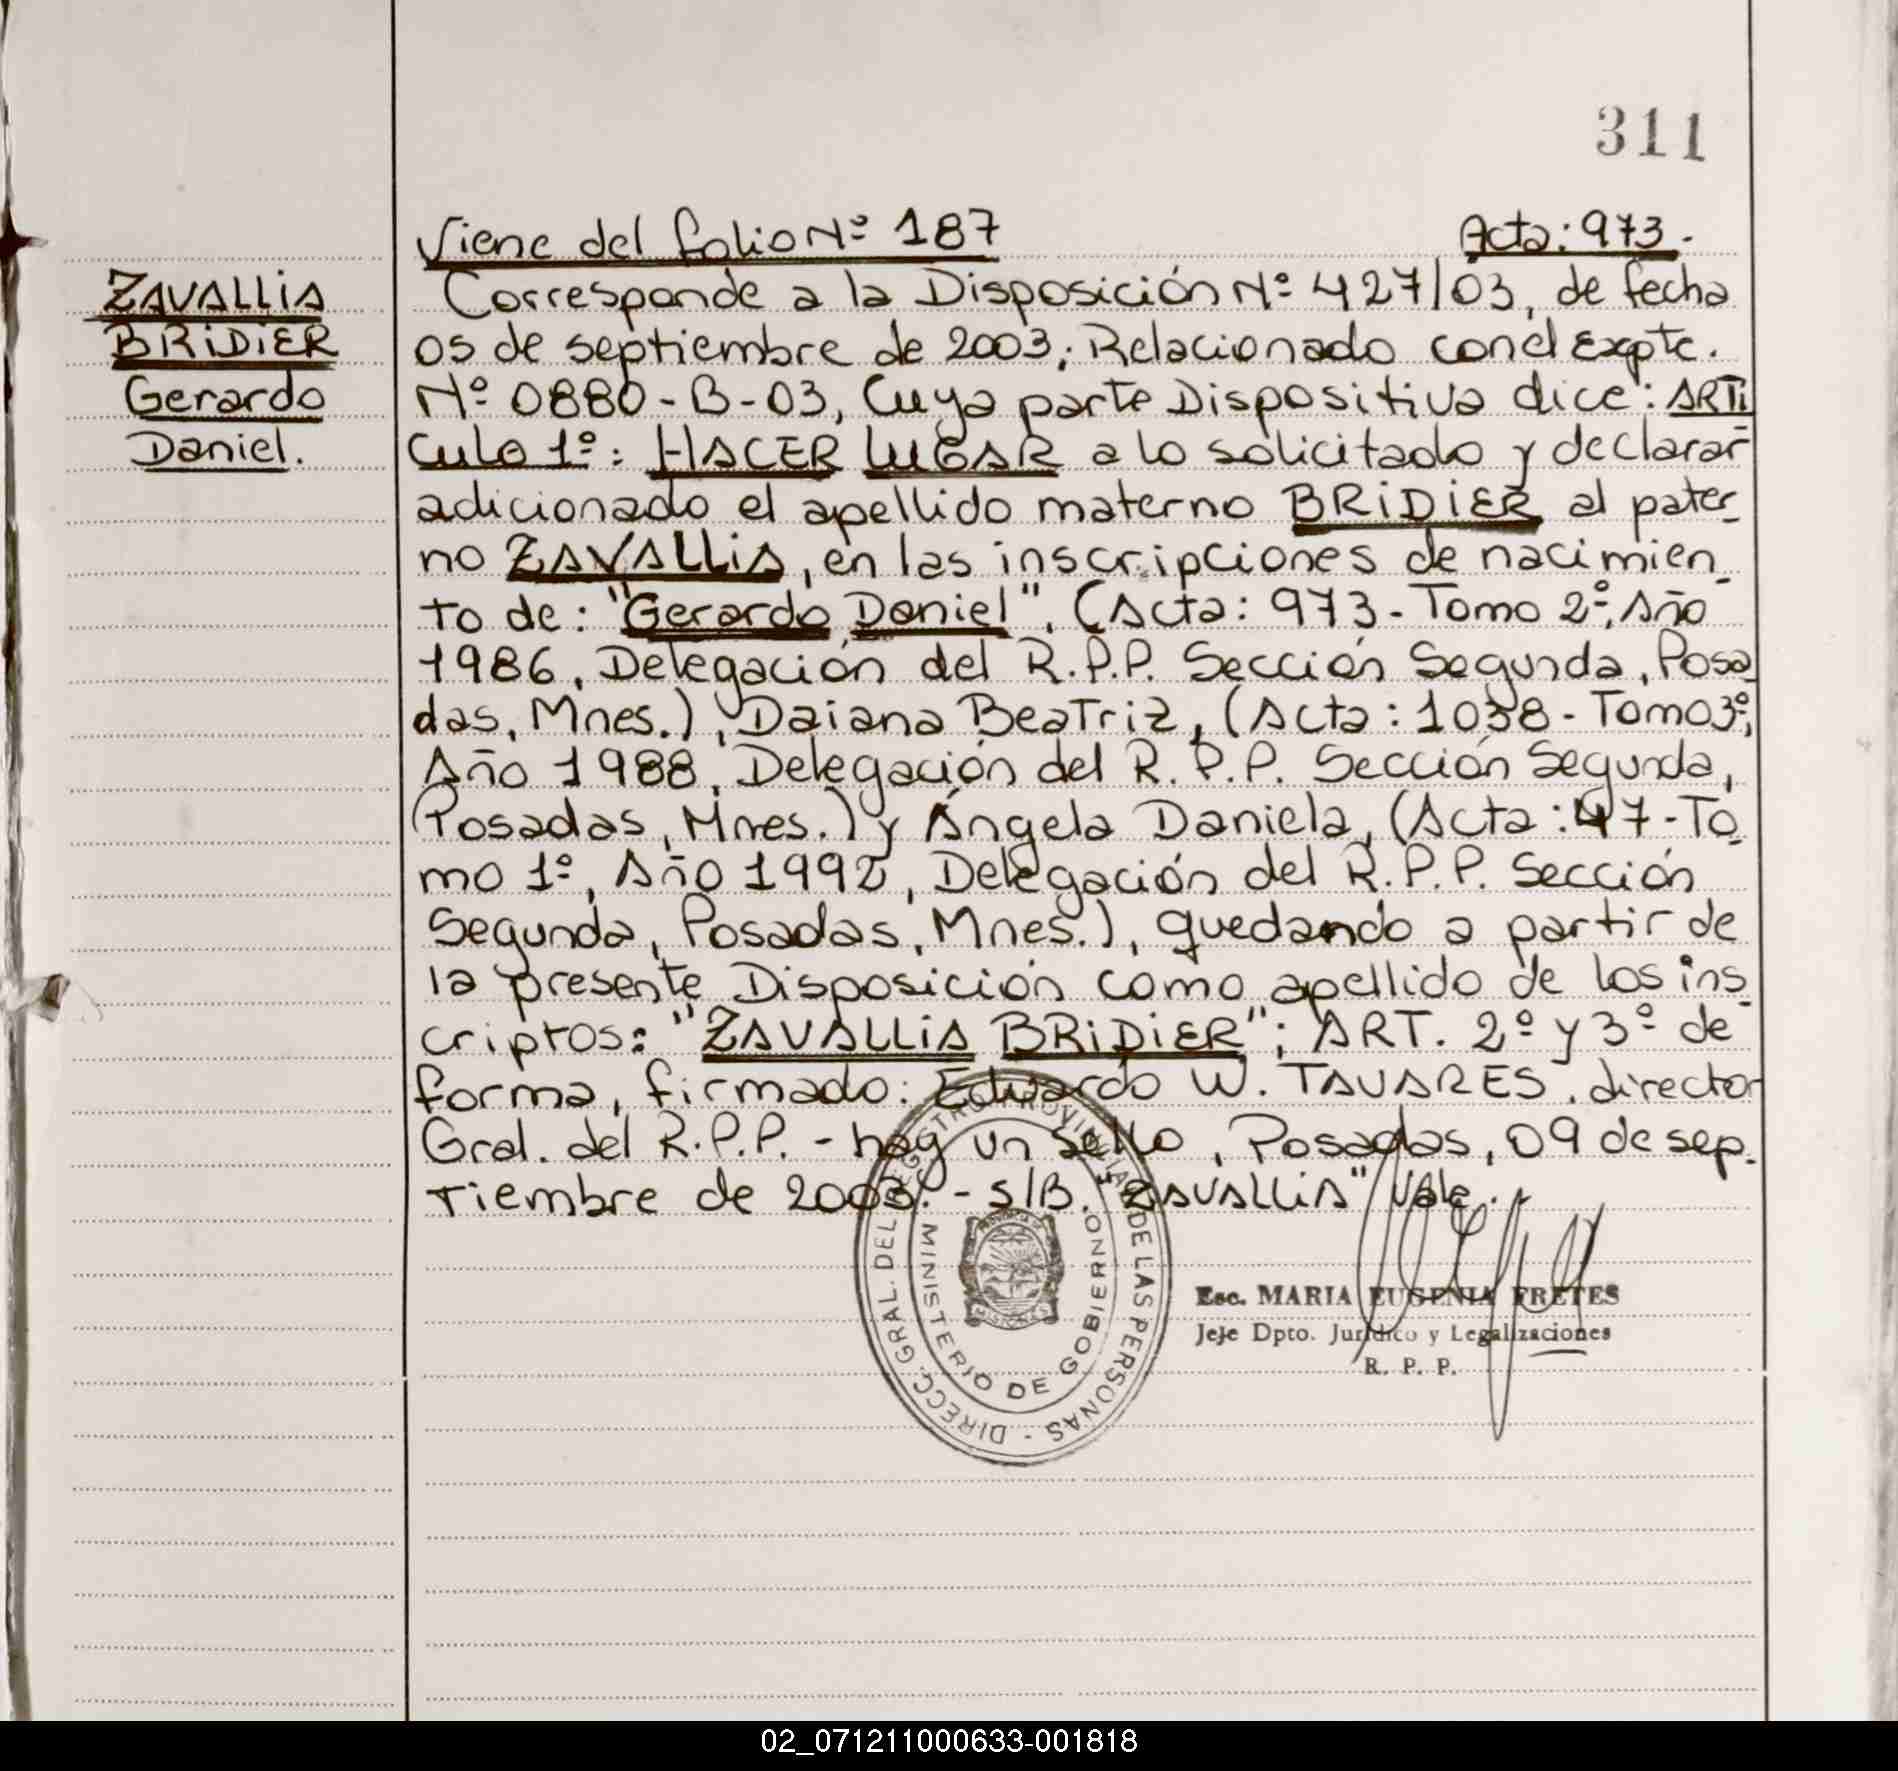 311
Viene del folio Nº 187
Acta: 973.-
ZAVALLIA
BRIDIER
Gerardo
Daniel.
Corresponde a la Disposición Nº 427/03, de fecha
05 de septiembre de 2003; Relacionado con el Expte.
Nº 0880-B-03, Cuya parte Dispositiva dice: ARTI
CULO 1º: HACER LUGAR a lo solicitado y declarar
adicionado el apellido materno BRIDIER al pater_
no ZAVALLIA, en las inscripciones de nacimien_
to de: "Gerardo Daniel", (Acta: 973 - Tomo 2º, Año
1986, Delegación del R.P.P. Sección Segunda, Posa_
das, Mnes.), Daiana Beatriz, (Acta: 1038 - Tomo 3º,
Año 1988, Delegación del R.P.P. Sección Segunda,
Posadas, Mnes.) y Ángela Daniela, (Acta: 47 - To_
mo 1º, Año 1992, Delegación del R.P.P. Sección
Segunda, Posadas, Mnes.), quedando a partir de
la presente Disposición como apellido de los ins_
criptos: "ZAVALLIA BRIDIER"; ART. 2º y 3º de
forma, firmado: Eduardo W. TAVARES, director
Gral. del R.P.P. - hay un sello, Posadas, 09 de sep_
tiembre de 2003. - S/B. "ZAVALLIA" Vale.-
DIRECC. GRAL. DEL REGISTRO PROVINCIAL DE LAS PERSONAS -
MINISTERIO DE GOBIERNO
Esc. MARIA EUGENIA FRETES
Jefe Dpto. Jurídico y Legalizaciones
R. P. P.
02_071211000633-001818